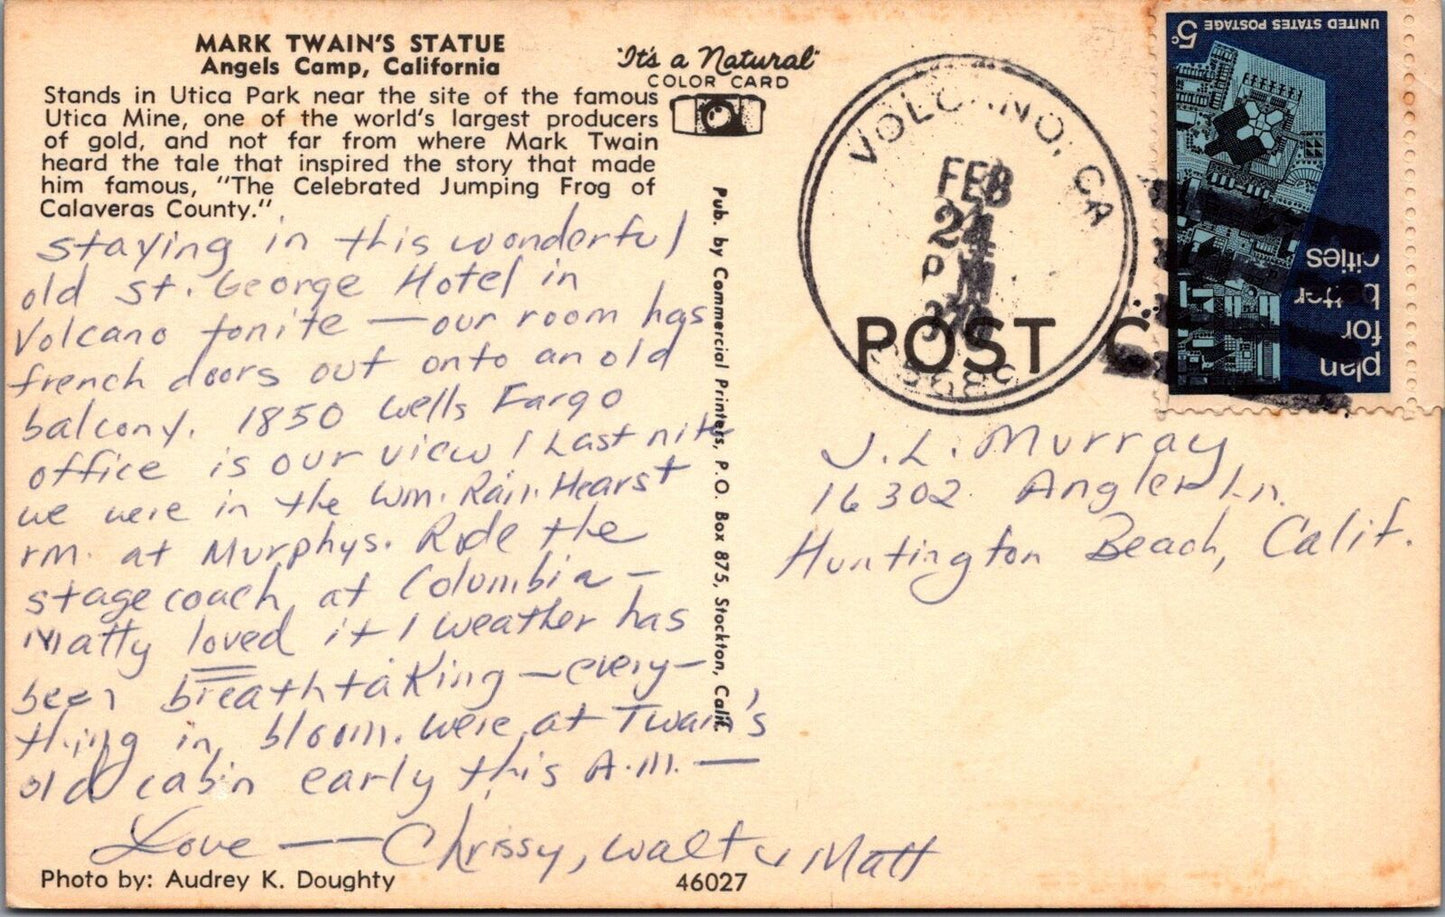 MARK TWAIN'S STATUE
Angels Camp, California
Stands in Utica Park near the site of the famous
Utica Mine, one of the world's largest producers
of gold, and not far from where Mark Twain
heard the tale that inspired the story that made
him famous, "The Celebrated Jumping Frog of
Calaveras County."
"It's a Natural"
COLOR CARD
staying in this wonderful
old St. George Hotel in
Volcano tonite — our room has
french doors out onto an old
balcony. 1850 Wells Fargo
office is our view! Last nite
we were in the Wm. Ran. Hearst
rm. at Murphys. Rode the
stage coach at Columbia —
Matty loved it! Weather has
been breathtaking — every-
thing in bloom. Were at Twain's
old cabin early this A.M. —
Love — Chrissy, Walt & Matt
Photo by: Audrey K. Doughty
46027
Pub. by Commercial Printers, P.O. Box 875, Stockton, Calif.
VOLCANO, CA
FEB
24
PM
95689
POST
UNITED STATES POSTAGE
5c
plan
for
better
cities
J. L. Murray
16302 Angler Ln.
Huntington Beach, Calif.